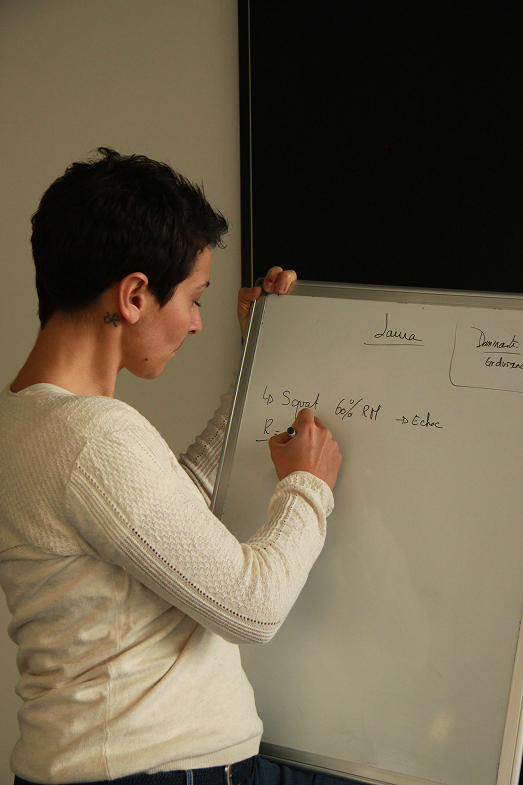 Laura
Dominante
Endurance
↳ Squat 60% RM → Echec
R =